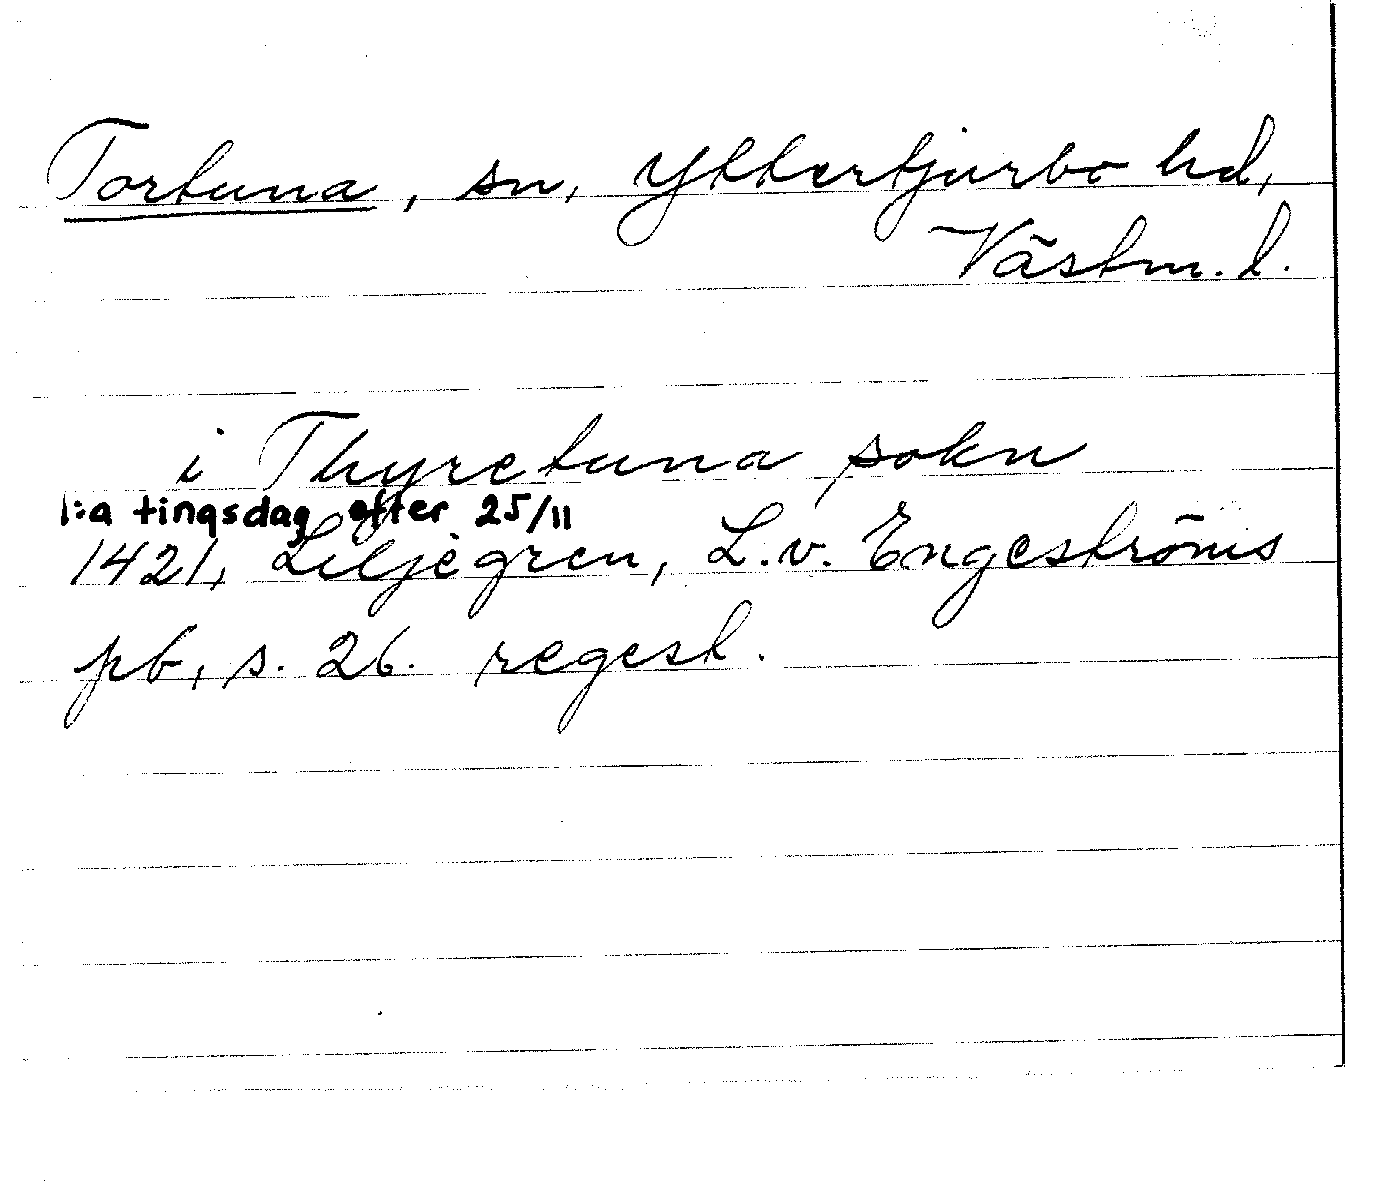 Tortuna, sn, Yttertjurbo hd,
Västm. l.
i Thyretuna sokn
1:a tingsdag efter 25/11
1421, Liljegren, L.v. Engeströms
pb, s. 26. regest.